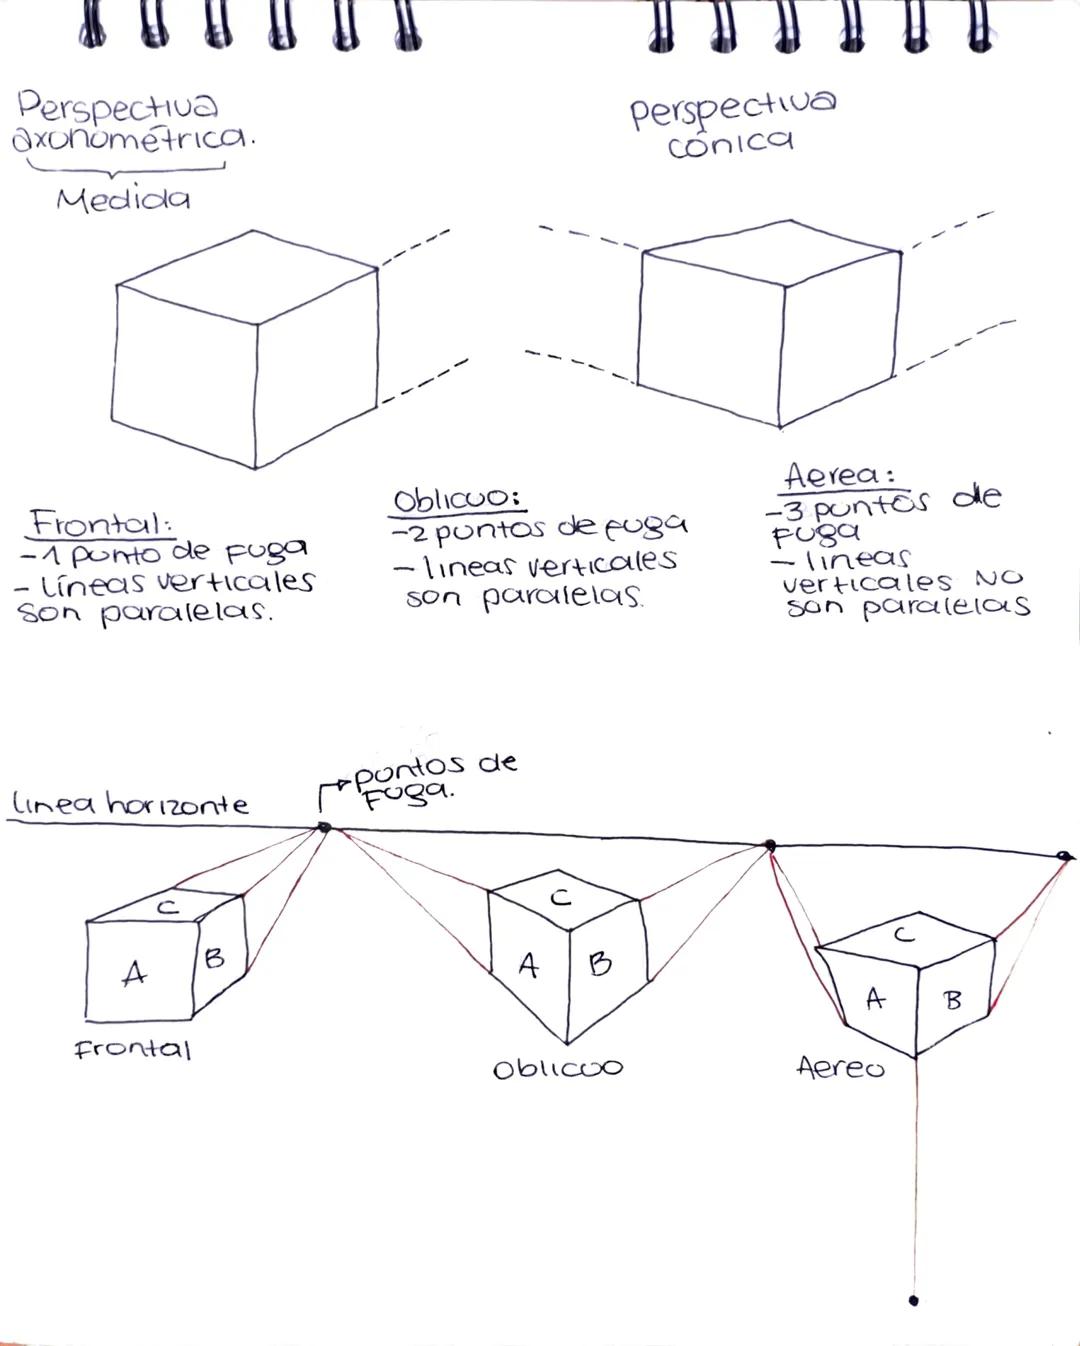 Perspectiva
axonométrica.
Medida
perspectiva
cónica
Frontal:
-1 punto de fuga
- líneas verticales
son paralelas.
Oblicuo:
-2 puntos de fuga
- lineas verticales
son paralelas.
Aerea:
-3 puntos de
fuga
- lineas
verticales NO
son paralelas
linea horizonte
puntos de
Fuga.
C
A
B
Frontal
C
A
B
Oblicuo
C
A
B
Aereo